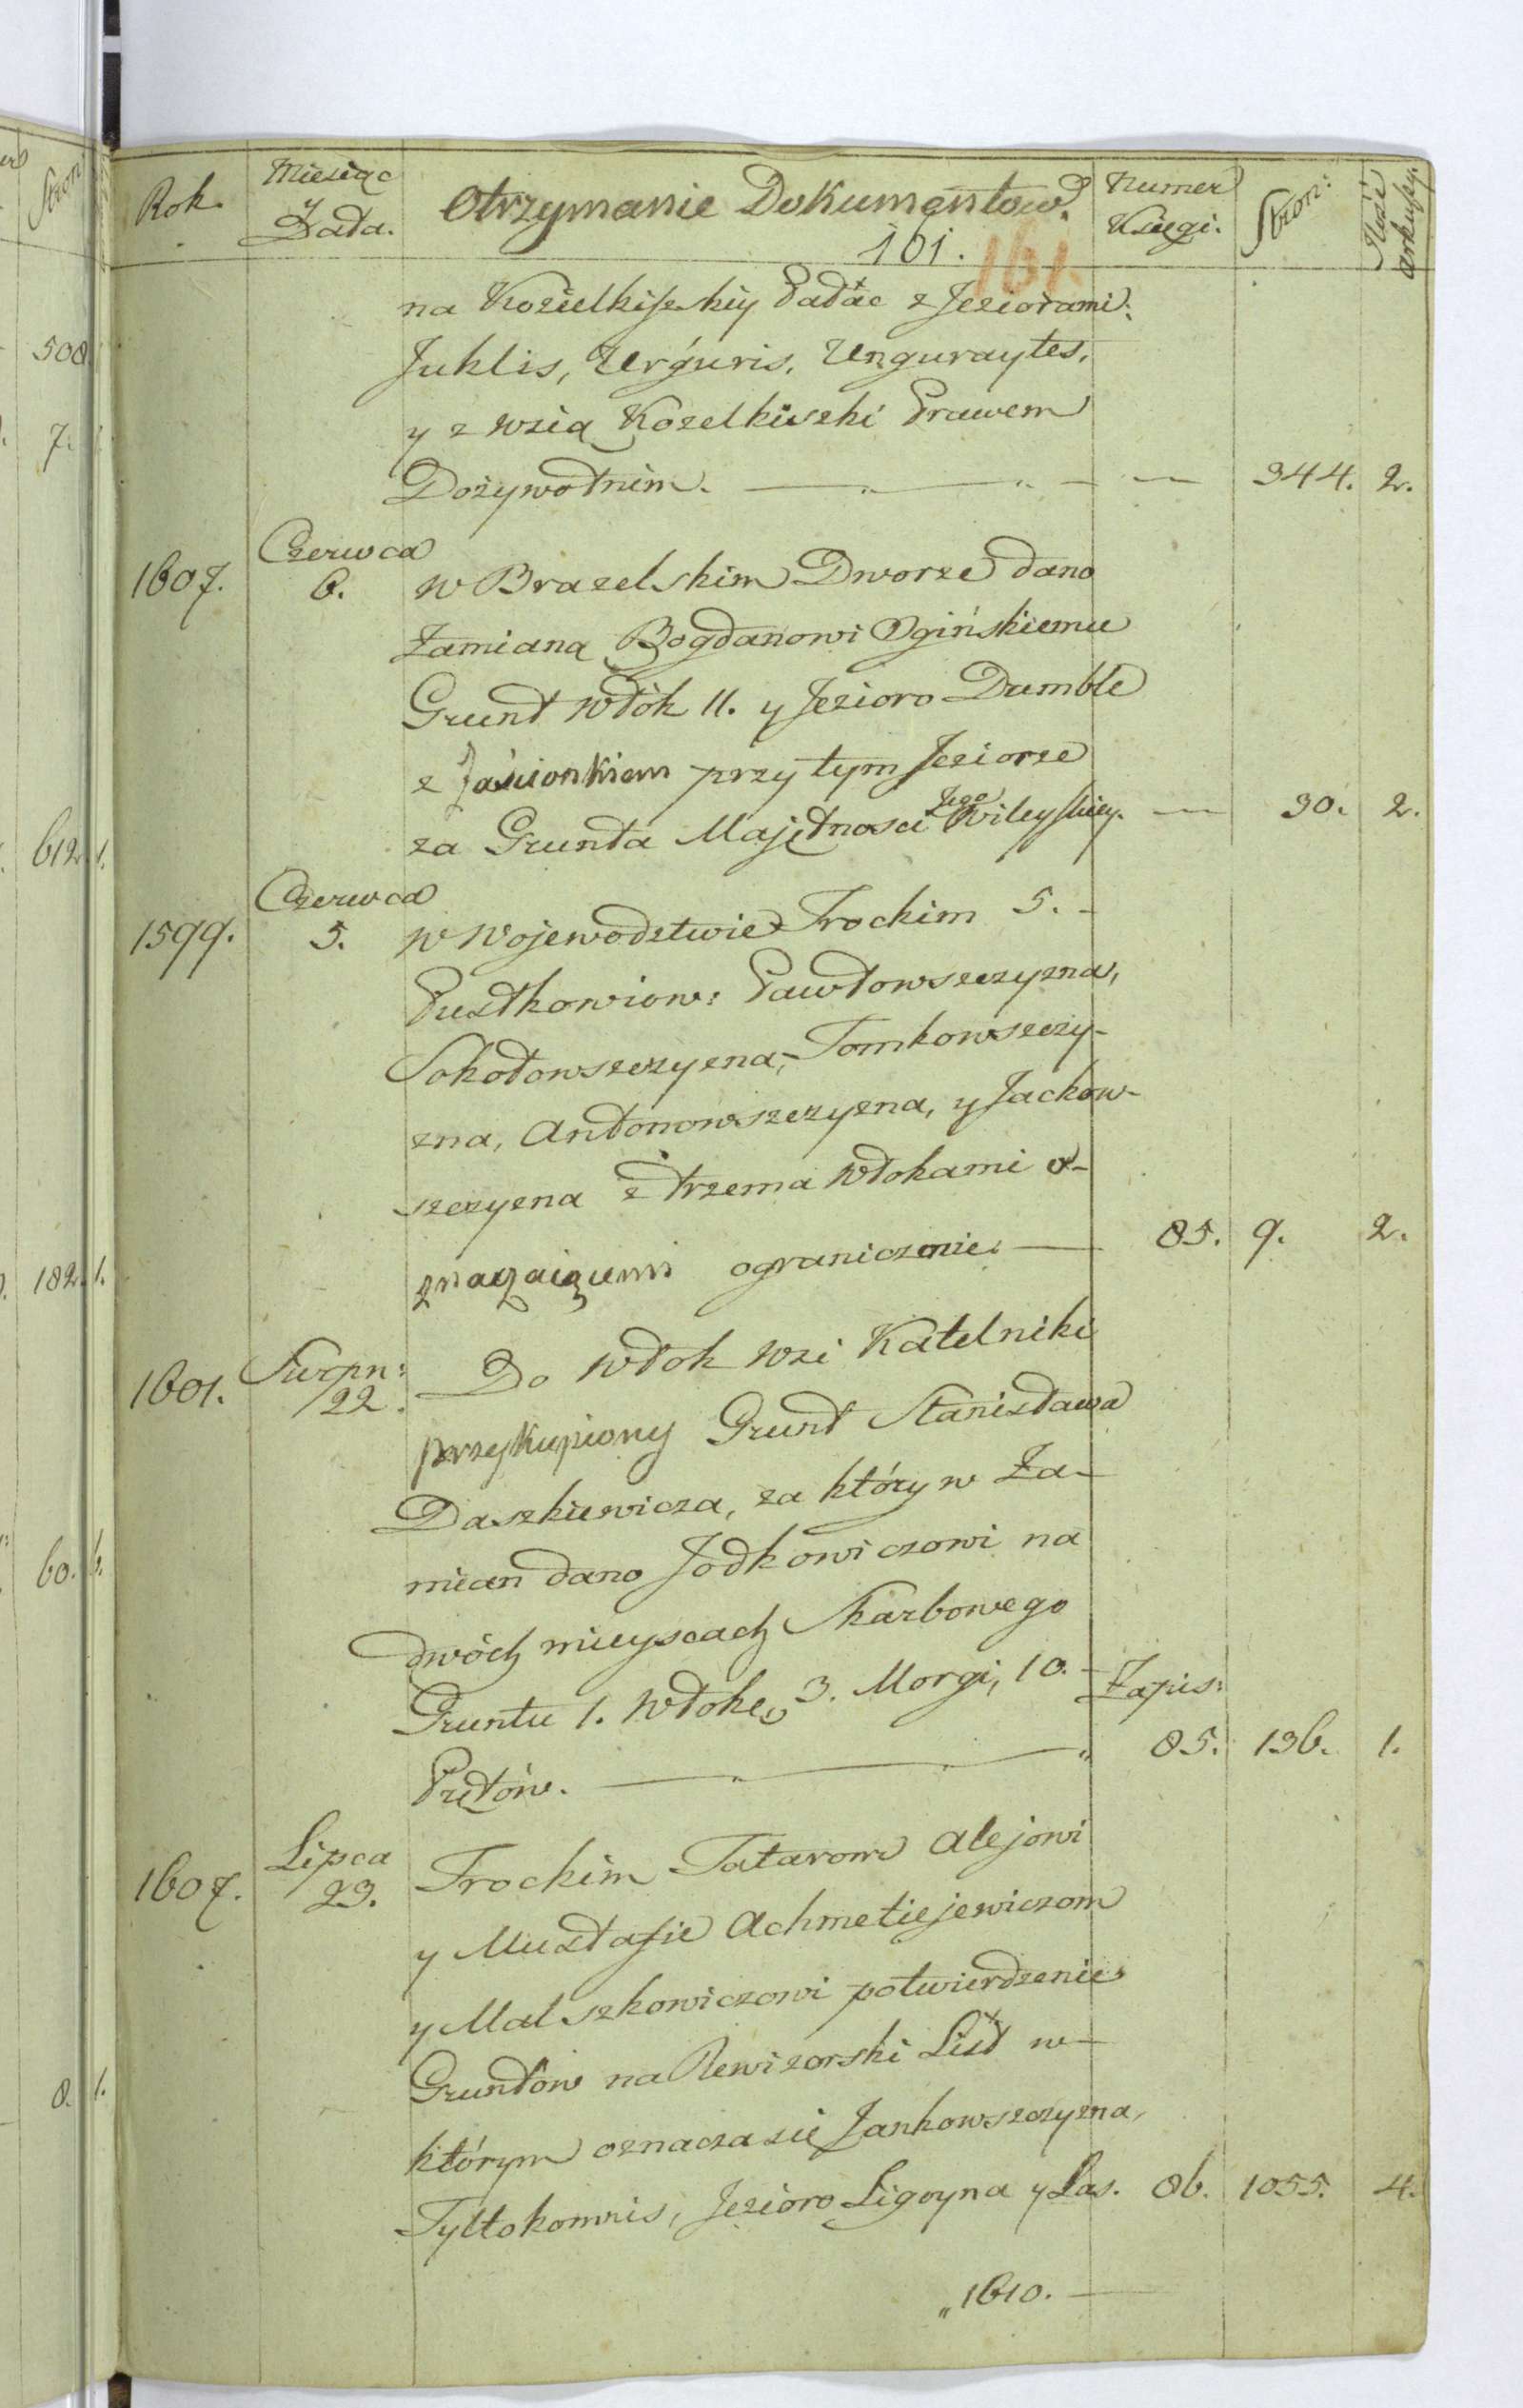 Rok.
Miesiąc
Data.
Otrzymanie Dokumentow.
Numer
Księgi.
Stron:
Ilość
arkuszy.
161.
161.
na Kozielkiszkiy Padać z Jeziorami:
Juklis, Urguris, Unguraytes,
y z wsią Kozelkiszki Prawem
Dożywotnim. — — — 344. 2.
1607. Czerwca
6. w Brazelskim Dworze dano
Zamianą Bogdanowi Ogińskiemu
Grunt Włók 11. y Jezioro Dumble
z Jasionkiem przy tym Jeziorze
za Grunta Majętnosci Jego Wileyskiey. — 30. 2.
1599. Czerwca
5. w Wojewodztwie Trockim 5. -
Pustkowiow: Pawłowszczyzna,
Sokołowszczyzna, Tomkowszczy-
zna, Antonowszczyzna, y Jackow-
szczyzna z trzema Włokami o-
znaczaiącemi ograniczenie. — 85. 9. 2.
1601. Sierpn:
22. Do Włok wsi Katelniki
przykupiony Grunt Stanisława
Daszkiewicza, za który w Za-
mian dano Jodkowiczowi na
dwóch mieyscach Skarbowego
Gruntu 1. Włokę, 3. Morgi, 10. -
Zapis:
Prętów. — 85. 136. 1.
1607. Lipca
23. Trockim Tatarom Alejowi
y Mustafie Achmetiejewiczom
y Malszkowiczowi potwierdzenie
Gruntow na Rewizorski List w-
którym oznacza się Jankowszczyzna,
Tyltokomnis, Jezioro Ligoyna y Las. 86. 1055. 4.
„1610. —
508
7.
612. 1.
182. 1.
60.
8. 1.